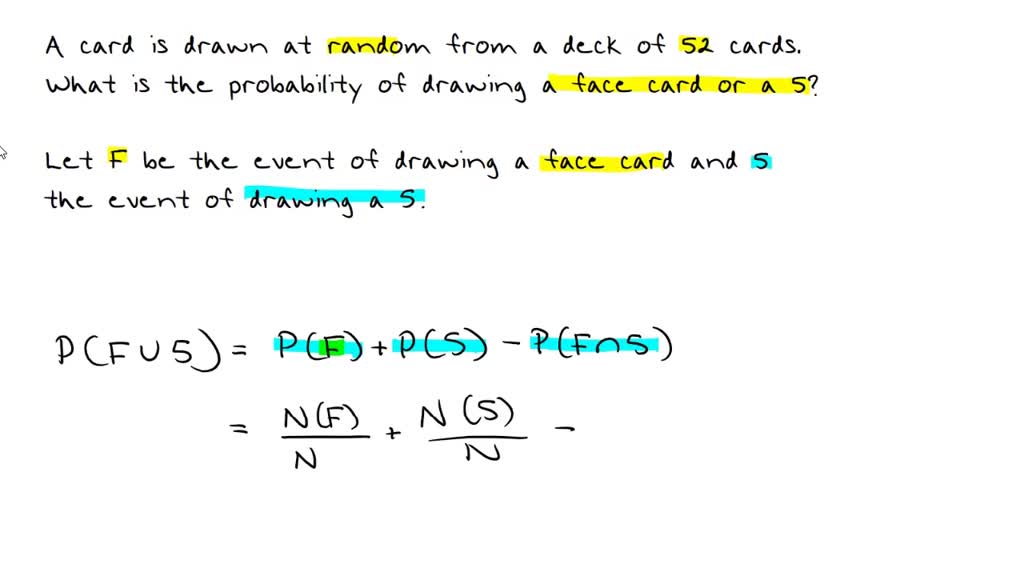 A card is drawn at random from a deck of 52 cards.
What is the probability of drawing a face card or a 5?
Let F be the event of drawing a face card and 5
the event of drawing a 5.
P(F∪5) = P(F) + P(5) - P(F∩5)
= N(F)/N + N(5)/N -